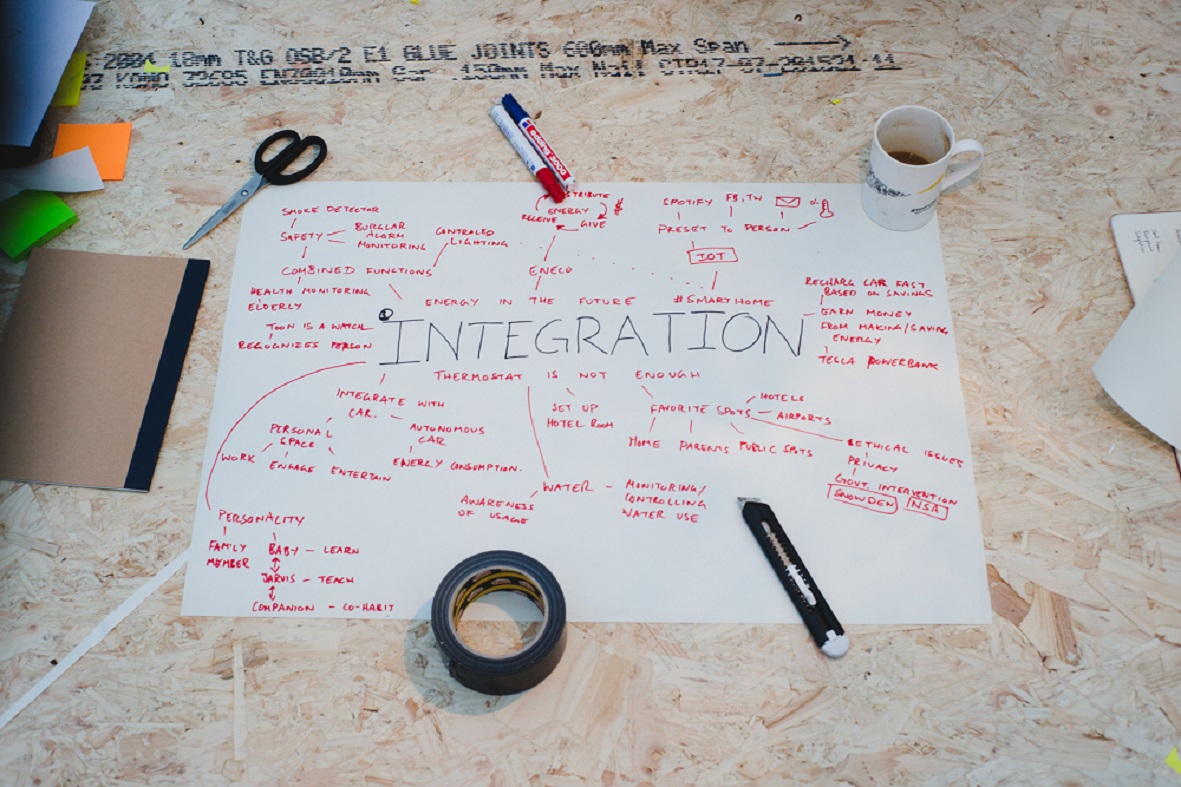 10mm T&G OSB/2 E1 GLUE JOINTS 600mm Max Span
150mm Max Nail
edding 3000
SMOKE DETECTOR
SAFETY
BURGLAR
ALARM
MONITORING
CONTROLED
LIGHTING
COMBINED FUNCTIONS
HEALTH MONITORING
ELDERLY
TOON IS A WATCH
RECOGNIZES PERSON
ENERGY
RECEIVE
GIVE
ENECO
ENERGY IN THE FUTURE
SPOTIFY
FB, TW
PRESET TO PERSON
IOT
#SMARTHOME
RECHARG CAR FAST
BASED ON SAVINGS
EARN MONEY
FROM MAKING/SAVING
ENERGY
TESLA POWERBANK
INTEGRATION
THERMOSTAT IS NOT ENOUGH
INTEGRATE WITH
CAR.
PERSONAL
SPACE
WORK
ENGAGE
ENTERTAIN
AUTONOMOUS
CAR
ENERGY CONSUMPTION.
SET UP
HOTEL ROOM
FAVORITE SPOTS
HOTELS
AIRPORTS
HOME
PARENTS
PUBLIC SPOTS
ETHICAL ISSUES
PRIVACY
GOVT. INTERVENTION
SNOWDEN
NSA
WATER
MONITORING/
CONTROLLING
WATER USE
AWARENESS
OF USAGE
PERSONALITY
FAMILY
MEMBER
BABY – LEARN
JARVIS – TEACH
COMPANION – CO-HABIT